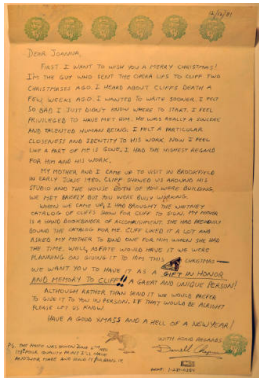 12/12/81
DEAR JOANNA,
FIRST I WANT TO WISH YOU A MERRY CHRISTMAS!
I'M THE GUY WHO SENT THE OMEGA LIFE TO CLIFF TWO
CHRISTMASES AGO. I HEARD ABOUT CLIFFS DEATH A
FEW WEEKS AGO. I WANTED TO WRITE SOONER. I FELT
SO BAD I JUST DIDN'T KNOW WHERE TO START. I FEEL
PRIVILEGED TO HAVE MET HIM. HE WAS REALLY A SINCERE
AND TALENTED HUMAN BEING. I FELT A PARTICULAR
CLOSENESS AND IDENTITY TO HIS WORK. NOW I FEEL
LIKE A PART OF ME IS GONE. I HAD THE HIGHEST REGARD
FOR HIM AND HIS WORK.
MY MOTHER AND I CAME UP TO VISIT IN BROOKFIELD
IN EARLY JUNE 1980. CLIFF SHOWED US AROUND HIS
STUDIO AND THE HOUSE BOTH OF YOU WERE BUILDING.
WE MET BRIEFLY BUT YOU WERE BUSY WORKING.
WHEN WE CAME UP, I HAD BROUGHT THE WHITNEY
CATALOG OF CLIFF'S SHOW FOR CLIFF TO SIGN. MY MOTHER
IS A HAND BOOKBINDER BY OCCUPATION. SHE HAD PREVIOUSLY
BOUND THE CATALOG FOR ME. CLIFF LIKED IT A LOT AND
ASKED MY MOTHER TO BIND ONE FOR HIM WHEN SHE HAD
THE TIME. WELL, WE WERE
PLANNING ON GIVING IT TO HIM THIS CHRISTMAS —
WE WANT YOU TO HAVE IT AS A GIFT IN HONOR
AND MEMORY TO CLIFF!! A GREAT AND UNIQUE PERSON!
ALTHOUGH RATHER THAN SEND IT WE WOULD PREFER
TO GIVE IT TO YOU IN PERSON, IF THAT WOULD BE ALRIGHT
PLEASE LET US KNOW
HAVE A GOOD XMASS AND A HELL OF A NEW YEAR!
WITH GOOD REGARDS